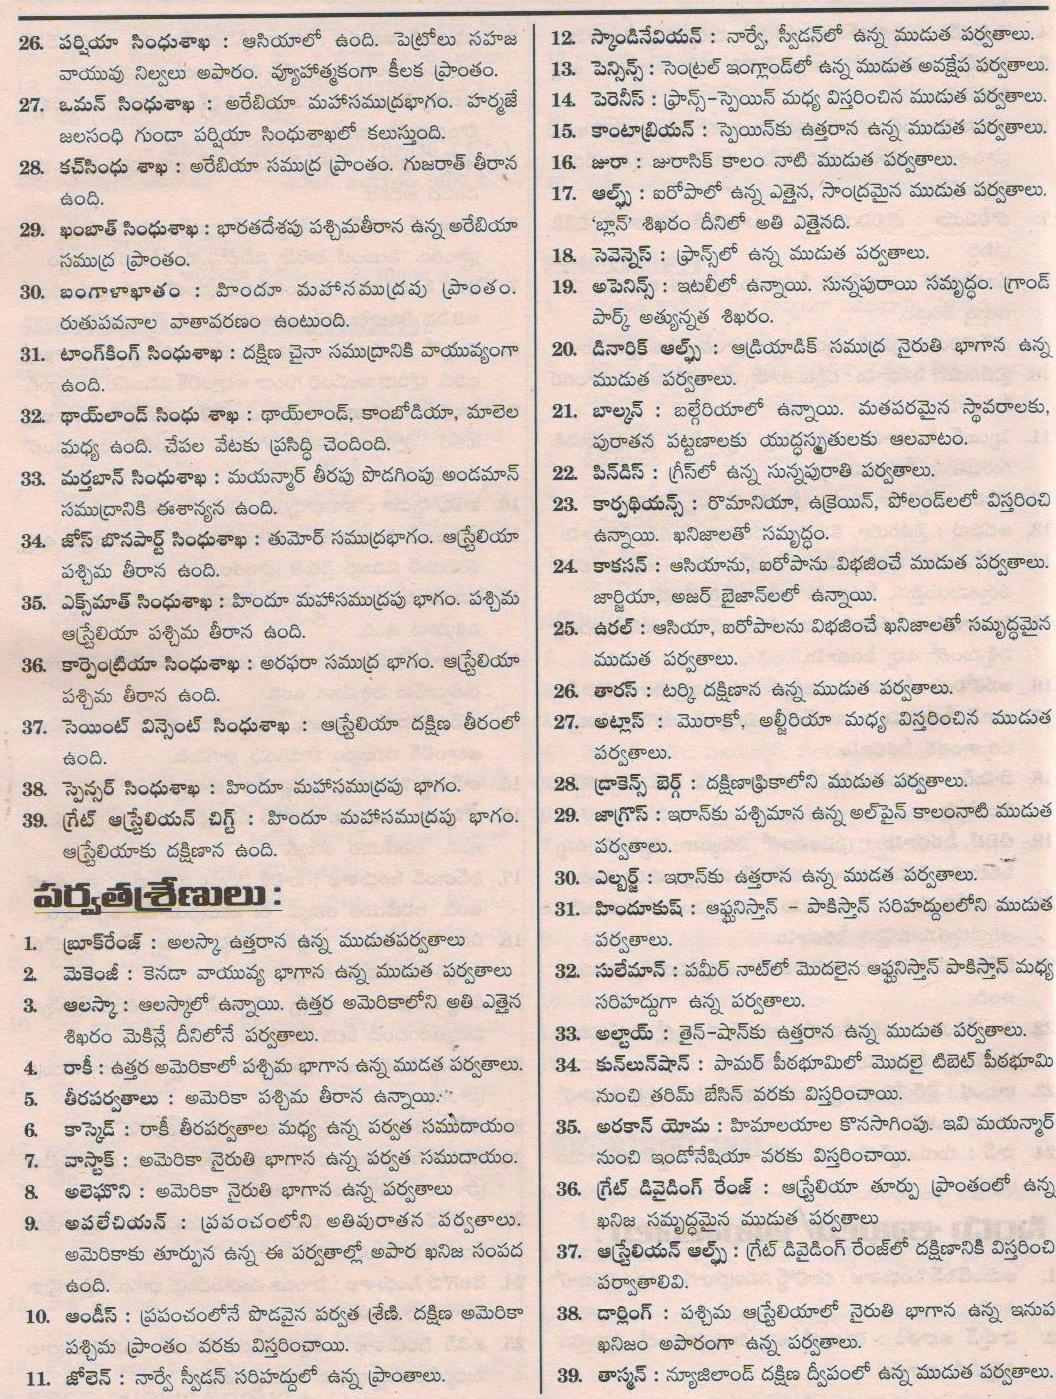 26. పర్షియా సింధుశాఖ : ఆసియాలో ఉంది. పెట్రోలు సహజ
వాయువు నిల్వలు అపారం. వ్యూహాత్మకంగా కీలక ప్రాంతం.
27. ఒమన్ సింధుశాఖ : అరేబియా మహాసముద్రభాగం. హర్మజే
జలసంధి గుండా పర్షియా సింధుశాఖలో కలుస్తుంది.
28. కచ్‌సింధు శాఖ : అరేబియా సముద్ర ప్రాంతం. గుజరాత్ తీరాన
ఉంది.
29. ఖంబాత్ సింధుశాఖ : భారతదేశపు పశ్చిమతీరాన ఉన్న అరేబియా
సముద్ర ప్రాంతం.
30. బంగాళాఖాతం : హిందూ మహాసముద్రవు ప్రాంతం.
రుతుపవనాల వాతావరణం ఉంటుంది.
31. టాంగ్‌కింగ్ సింధుశాఖ : దక్షిణ చైనా సముద్రానికి వాయువ్యంగా
ఉంది.
32. థాయ్‌లాండ్ సింధు శాఖ : థాయ్‌లాండ్, కాంబోడియా, మాలెల
మధ్య ఉంది. చేపల వేటకు ప్రసిద్ధి చెందింది.
33. మర్తబాన్ సింధుశాఖ : మయన్మార్ తీరపు పొడగింపు అండమాన్
సముద్రానికి ఈశాన్యన ఉంది.
34. జోస్ బొనపార్ట్ సింధుశాఖ : తుమోర్ సముద్రభాగం. ఆస్ట్రేలియా
పశ్చిమ తీరాన ఉంది.
35. ఎక్స్‌మాత్ సింధుశాఖ : హిందూ మహాసముద్రపు భాగం. పశ్చిమ
ఆస్ట్రేలియా పశ్చిమ తీరాన ఉంది.
36. కార్పెంట్రియా సింధుశాఖ : అరఫరా సముద్ర భాగం. ఆస్ట్రేలియా
పశ్చిమ తీరాన ఉంది.
37. సెయింట్ విన్సెంట్ సింధుశాఖ : ఆస్ట్రేలియా దక్షిణ తీరంలో
ఉంది.
38. స్పెన్సర్ సింధుశాఖ : హిందూ మహాసముద్రపు భాగం.
39. గ్రేట్ ఆస్ట్రేలియన్ చిగ్ట్ : హిందూ మహాసముద్రపు భాగం.
ఆస్ట్రేలియాకు దక్షిణాన ఉంది.
పర్వతశ్రేణులు :
1. బ్రూక్‌రేంజ్ : అలస్కా ఉత్తరాన ఉన్న ముడుతపర్వతాలు
2. మెకెంజీ : కెనడా వాయువ్య భాగాన ఉన్న ముడుత పర్వతాలు
3. ఆలస్కా : ఆలస్కాలో ఉన్నాయి. ఉత్తర అమెరికాలోని అతి ఎత్తైన
శిఖరం మెకిన్లే దీనిలోనే పర్వతాలు.
4. రాకీ : ఉత్తర అమెరికాలో పశ్చిమ భాగాన ఉన్న ముడత పర్వతాలు.
5. తీరపర్వతాలు : అమెరికా పశ్చిమ తీరాన ఉన్నాయి.
6. కాస్కెడ్ : రాకీ తీరపర్వతాల మధ్య ఉన్న పర్వత సముదాయం
7. వాస్టాక్ : అమెరికా నైరుతి భాగాన ఉన్న పర్వత సముదాయం.
8. అలెఘొని : అమెరికా నైరుతి భాగాన ఉన్న పర్వతాలు
9. అపలేచియన్ : ప్రపంచంలోని అతిపురాతన పర్వతాలు.
అమెరికాకు తూర్పున ఉన్న ఈ పర్వతాల్లో అపార ఖనిజ సంపద
ఉంది.
10. ఆండీస్ : ప్రపంచంలోనే పొడవైన పర్వత శ్రేణి. దక్షిణ అమెరికా
పశ్చిమ ప్రాంతం వరకు విస్తరించాయి.
11. జోలెన్ : నార్వే స్వీడన్ సరిహద్దులో ఉన్న ప్రాంతాలు.
12. స్కాండినేవియన్ : నార్వే, స్వీడన్‌లో ఉన్న ముడుత పర్వతాలు.
13. పెన్సిన్స్ : సెంట్రల్ ఇంగ్లాండ్‌లో ఉన్న ముడుత అవక్షేప పర్వతాలు.
14. పెరెనీస్ : ఫ్రాన్స్-స్పెయిన్ మధ్య విస్తరించిన ముడుత పర్వతాలు.
15. కాంటాబ్రియన్ : స్పెయిన్‌కు ఉత్తరాన ఉన్న ముడుత పర్వతాలు.
16. జురా : జురాసిక్ కాలం నాటి ముడుత పర్వతాలు.
17. ఆల్ఫ్స్ : ఐరోపాలో ఉన్న ఎత్తైన, సాంద్రమైన ముడుత పర్వతాలు.
'బ్లాన్' శిఖరం దీనిలో అతి ఎత్తైనది.
18. సెవెన్నెస్ : ఫ్రాన్స్‌లో ఉన్న ముడుత పర్వతాలు.
19. అపెనిన్స్ : ఇటలీలో ఉన్నాయి. సున్నపురాయి సమృద్ధం. గ్రాండ్
పార్క్ అత్యున్నత శిఖరం.
20. డినారిక్ ఆల్ఫ్స్ : ఆడ్రియాడిక్ సముద్ర నైరుతి భాగాన ఉన్న
ముడుత పర్వతాలు.
21. బాల్కన్ : బల్గేరియాలో ఉన్నాయి. మతపరమైన స్థావరాలకు,
పురాతన పట్టణాలకు యుద్ధస్మృతులకు ఆలవాటం.
22. పిన్‌డిస్ : గ్రీస్‌లో ఉన్న సున్నపురాతి పర్వతాలు.
23. కార్పథియన్స్ : రొమానియా, ఉక్రెయిన్, పోలండ్‌లలో విస్తరించి
ఉన్నాయి. ఖనిజాలతో సమృద్ధం.
24. కాకసన్ : ఆసియాను, ఐరోపాను విభజించే ముడుత పర్వతాలు.
జార్జియా, అజర్ బైజాన్‌లలో ఉన్నాయి.
25. ఉరల్ : ఆసియా, ఐరోపాలను విభజించే ఖనిజాలతో సమృద్ధమైన
ముడుత పర్వతాలు.
26. తారస్ : టర్కి దక్షిణాన ఉన్న ముడుత పర్వతాలు.
27. అట్లాస్ : మొరాకో, అల్జీరియా మధ్య విస్తరించిన ముడుత
పర్వతాలు.
28. డ్రాకెన్స్ బెర్గ్ : దక్షిణాఫ్రికాలోని ముడుత పర్వతాలు.
29. జాగ్రొస్ : ఇరాన్‌కు పశ్చిమాన ఉన్న అల్‌పైన్ కాలంనాటి ముడుత
పర్వతాలు.
30. ఎల్బర్జ్ : ఇరాన్‌కు ఉత్తరాన ఉన్న ముడత పర్వతాలు.
31. హిందూకుష్ : ఆఫ్ఘనిస్తాన్ – పాకిస్తాన్ సరిహద్దులలోని ముడుత
పర్వతాలు.
32. సులేమాన్ : పమీర్ నాట్‌లో మొదలైన ఆఫ్ఘనిస్తాన్ పాకిస్తాన్ మధ్య
సరిహద్దుగా ఉన్న పర్వతాలు.
33. అల్టాయ్ : తైన్-షాన్‌కు ఉత్తరాన ఉన్న ముడుత పర్వతాలు.
34. కున్‌లున్‌షాన్ : పామర్ పీఠభూమిలో మొదలై టిబెట్ పీఠభూమి
నుంచి తరిమ్ బేసిన్ వరకు విస్తరించాయి.
35. అరకాన్ యోమ : హిమాలయాల కొనసాగింపు. ఇవి మయన్మార్
నుంచి ఇండోనేషియా వరకు విస్తరించాయి.
36. గ్రేట్ డివైడింగ్ రేంజ్ : ఆస్ట్రేలియా తూర్పు ప్రాంతంలో ఉన్న
ఖనిజ సమృద్ధమైన ముడుత పర్వతాలు
37. ఆస్ట్రేలియన్ ఆల్ఫ్స్ : గ్రేట్ డివైడింగ్ రేంజ్‌లో దక్షిణానికి విస్తరించి
పర్వాతాలివి.
38. డార్లింగ్ : పశ్చిమ ఆస్ట్రేలియాలో నైరుతి భాగాన ఉన్న ఇనుప
ఖనిజం అపారంగా ఉన్న పర్వతాలు.
39. తాస్మన్ : న్యూజిలాండ్ దక్షిణ ద్వీపంలో ఉన్న ముడుత పర్వతాలు.